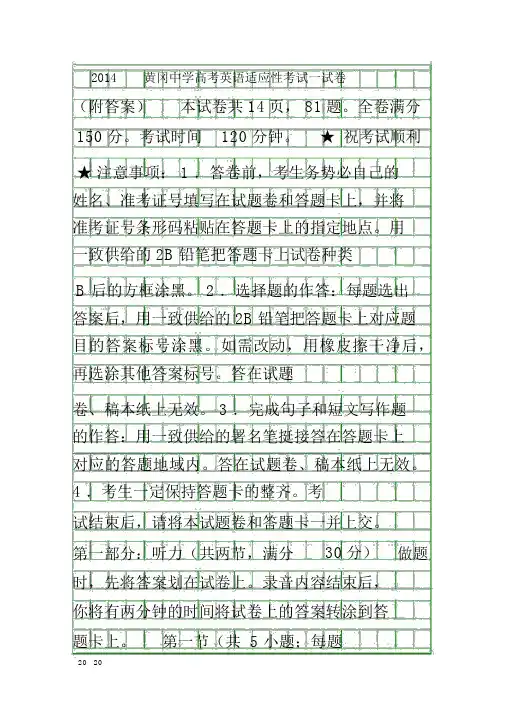 2014 黄冈中学高考英语适应性考试一试卷
（附答案） 本试卷共14页，81题。全卷满分
150分。考试时间 120分钟。 ★ 祝考试顺利
★ 注意事项： 1 ．答卷前，考生务势必自己的
姓名、准考证号填写在试题卷和答题卡上，并将
准考证号条形码粘贴在答题卡上的指定地点。用
一致供给的2B 铅笔把答题卡上试卷种类
B 后的方框涂黑。 2 ．选择题的作答：每题选出
答案后，用一致供给的2B 铅笔把答题卡上对应题
目的答案标号涂黑。如需改动，用橡皮擦干净后，
再选涂其他答案标号。答在试题
卷、稿本纸上无效。 3 ．完成句子和短文写作题
的作答：用一致供给的署名笔挺接答在答题卡上
对应的答题地域内。答在试题卷、稿本纸上无效。
4 ．考生一定保持答题卡的整齐。考
试结束后，请将本试题卷和答题卡一并上交。
第一部分：听力（共两节，满分 30分） 做题
时，先将答案划在试卷上。录音内容结束后，
你将有两分钟的时间将试卷上的答案转涂到答
题卡上。 第一节（共 5小题；每题
20 20